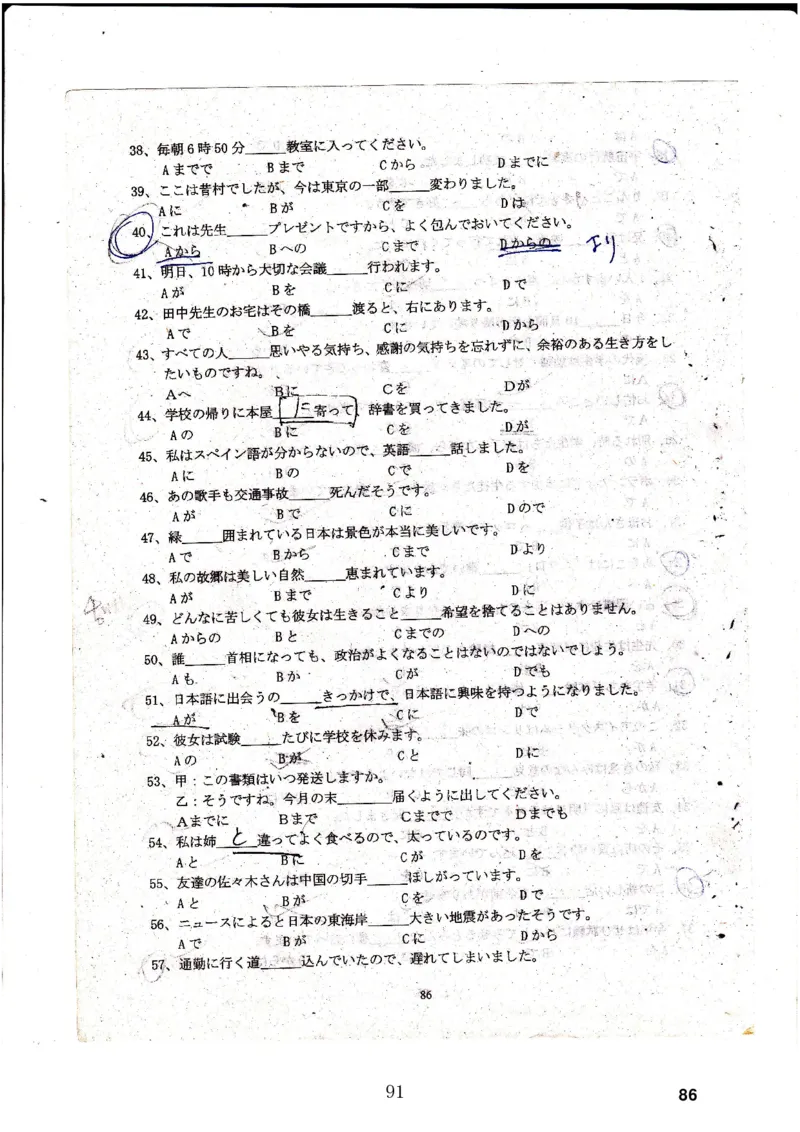 38、毎朝6時50分_____教室に入ってください。
Aまでで Bまで Cから Dまでに
39、ここは昔村でしたが、今は東京の一部_____変わりました。
Aに Bが Cを Dは
40、これは先生_____プレゼントですから、よく包んでおいてください。
Aから Bへの Cまで Dからの より
41、明日、10時から大切な会議_____行われます。
Aが Bを Cに Dで
42、田中先生のお宅はその橋_____渡ると、右にあります。
Aで Bを Cに Dから
43、すべての人_____思いやる気持ち、感謝の気持ちを忘れずに、余裕のある生き方をし
たいものですね。
Aへ Bに Cを Dが
44、学校の帰りに本屋 に 寄って、辞書を買ってきました。
Aの Bに Cを Dが
45、私はスペイン語が分からないので、英語_____話しました。
Aに Bの Cで Dを
46、あの歌手も交通事故_____死んだそうです。
Aが Bで Cに Dので
47、緑_____囲まれている日本は景色が本当に美しいです。
Aで Bから Cまで Dより
48、私の故郷は美しい自然_____恵まれています。
Aが Bまで Cより Dに
49、どんなに苦しくても彼女は生きること_____希望を捨てることはありません。
Aからの Bと Cまでの Dへの
50、誰_____首相になっても、政治がよくなることはないのではないでしょう。
Aも Bか Cが Dでも
51、日本語に出会うの_____きっかけで、日本語に興味を持つようになりました。
Aが Bを Cに Dで
52、彼女は試験_____たびに学校を休みます。
Aの Bが Cと Dに
53、甲：この書類はいつ発送しますか。
乙：そうですね。今月の末_____届くように出してください。
Aまでに Bまで Cまでで Dまでも
54、私は姉 と 違ってよく食べるので、太っているのです。
Aと Bに Cが Dを
55、友達の佐々木さんは中国の切手_____ほしがっています。
Aと Bが Cを Dで
56、ニュースによると日本の東海岸_____大きい地震があったそうです。
Aで Bが Cに Dから
57、通勤に行く道_____込んでいたので、遅れてしまいました。
86
91
86